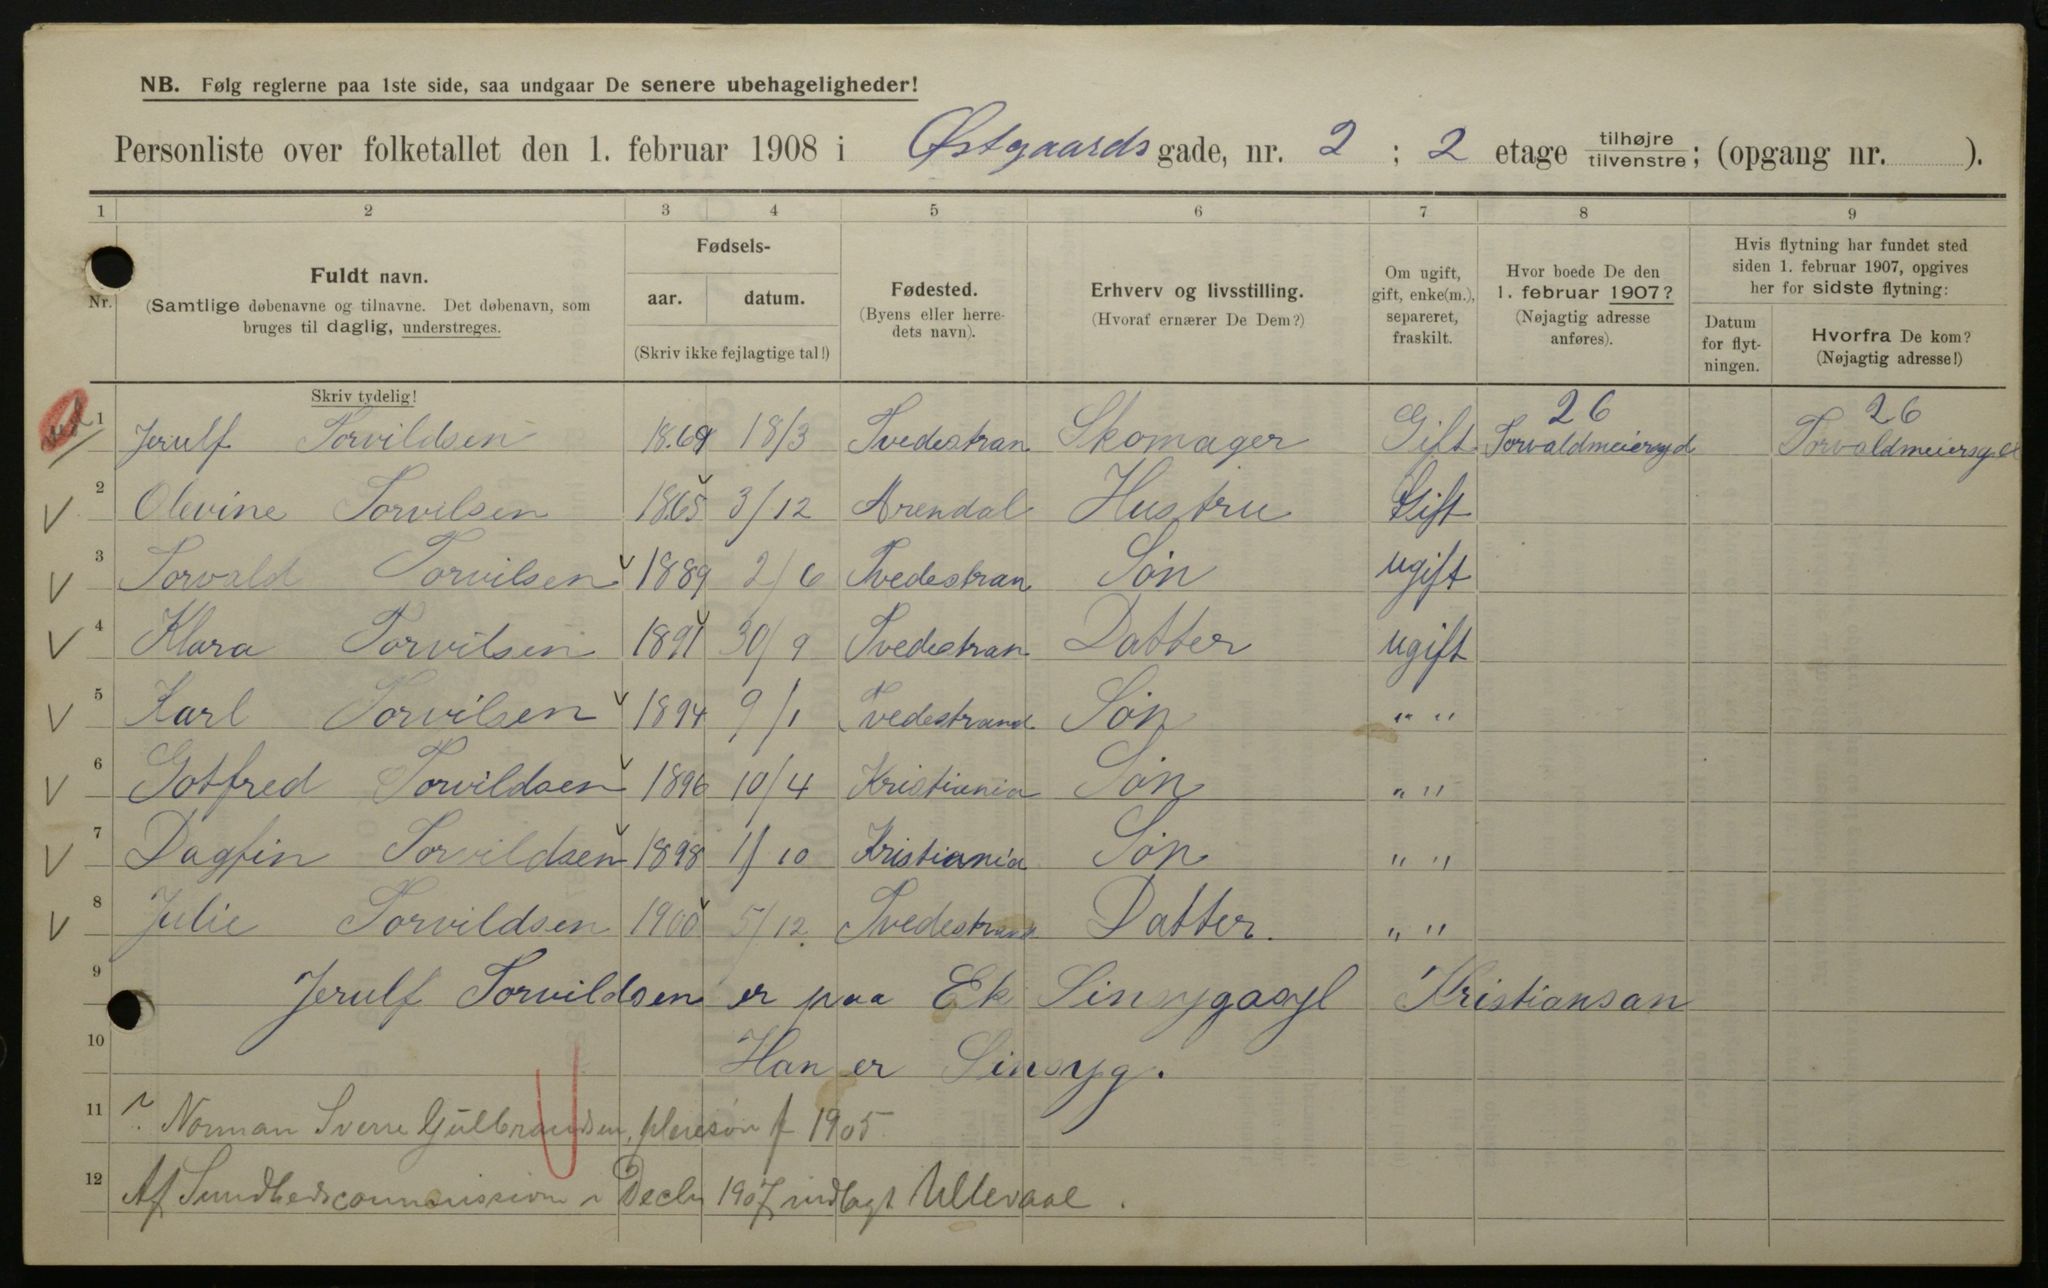 NB. Følg reglerne paa 1ste side, saa undgaar De senere ubehageligheder!
Personliste over folketallet den 1. februar 1908 i Østgaards gade, nr. 2 ; 2 etage tilhøjre / tilvenstre ; (opgang nr. ).
1 2 3 4 5 6 7 8 9
Nr.
Fuldt navn.
(Samtlige døbenavne og tilnavne. Det døbenavn, som
bruges til daglig, understreges.
Skriv tydelig!
Fødsels-
aar. datum.
(Skriv ikke fejlagtige tal!)
Fødested.
(Byens eller herre-
dets navn).
Erhverv og livsstilling.
(Hvoraf ernærer De Dem?)
Om ugift,
gift, enke(m.),
separeret,
fraskilt.
Hvor boede De den
1. februar 1907?
(Nøjagtig adresse
anføres).
Hvis flytning har fundet sted
siden 1. februar 1907, opgives
her for sidste flytning:
Datum
for flyt-
ningen.
Hvorfra De kom?
(Nøjagtig adresse!)
26 26
1 Jerulf Torvildsen 1869 18/3 Tvedestran Skomager Gift Torvaldmeiersgd Torvaldmeiersgd
2 Olevine Torvilsen 1865 3/12 Arendal Hustru Gift
3 Torvald Torvilsen 1889 2/6 Tvedestran Søn ugift
4 Klara Torvilsen 1891 30/9 Tvedestran Datter ugift
5 Karl Torvilsen 1894 9/1 Tvedestrand Søn " "
6 Gotfred Torvildsen 1896 10/4 Kristiania Søn " "
7 Dagfin Torvildsen 1898 1/10 Kristiania Søn " "
8 Julie Torvildsen 1900 5/12 Tvedestrand Datter. " "
9 Jerulf Torvildsen er paa Ek Sinsygasyl Kristiansan
10 Han er Sinsyg.
11 Norman Sverre Gulbrandsen, pleiesøn f 1905
12 Af Sundhedscommission i Decbr 1907 indlagt Ullevaal.